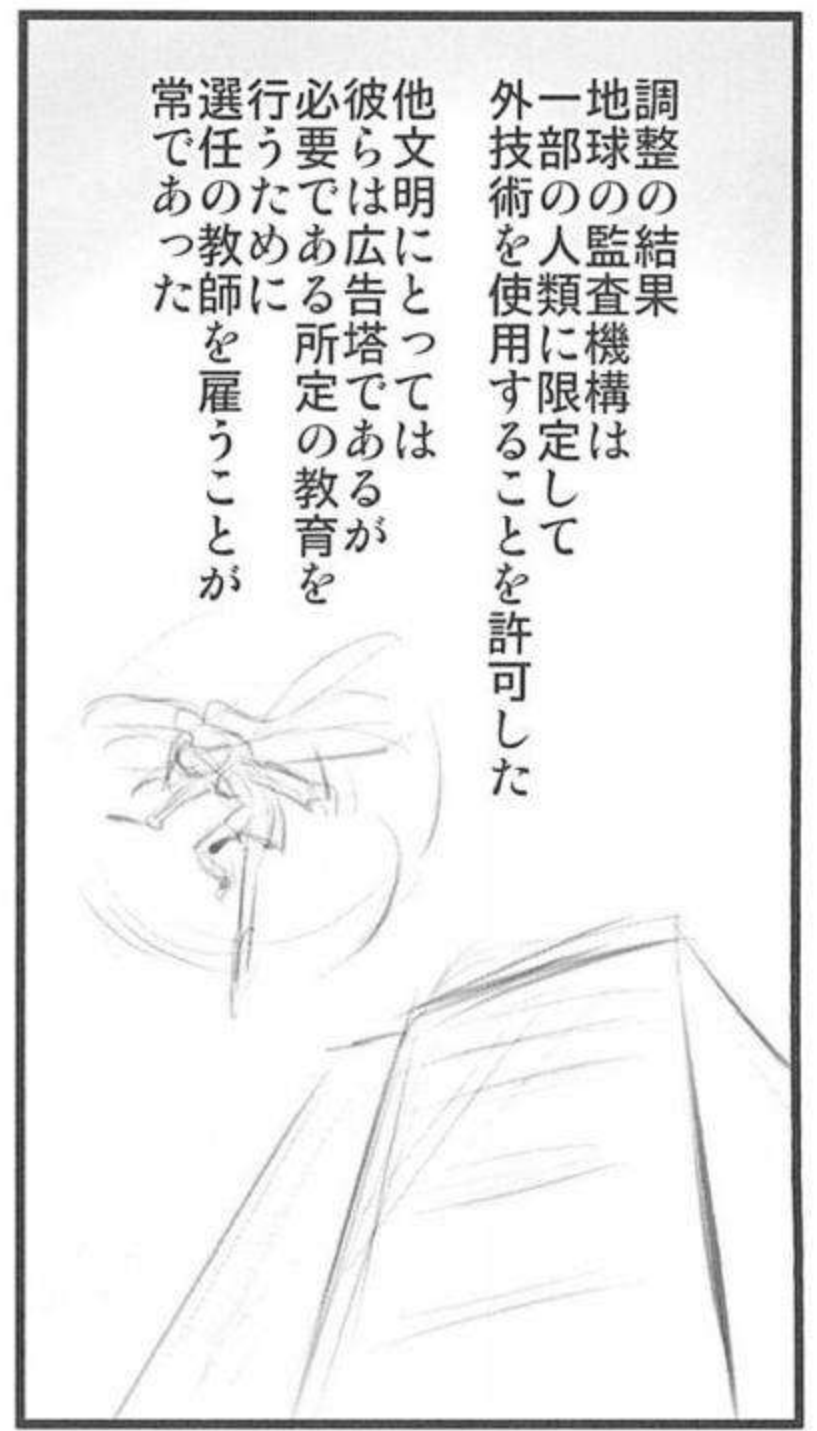 調整の結果
地球の監査機構は
一部の人類に限定して
外技術を使用することを許可した
他文明にとっては
彼らは広告塔であるが
必要である所定の教育を
行うために
選任の教師を雇うことが
常であった